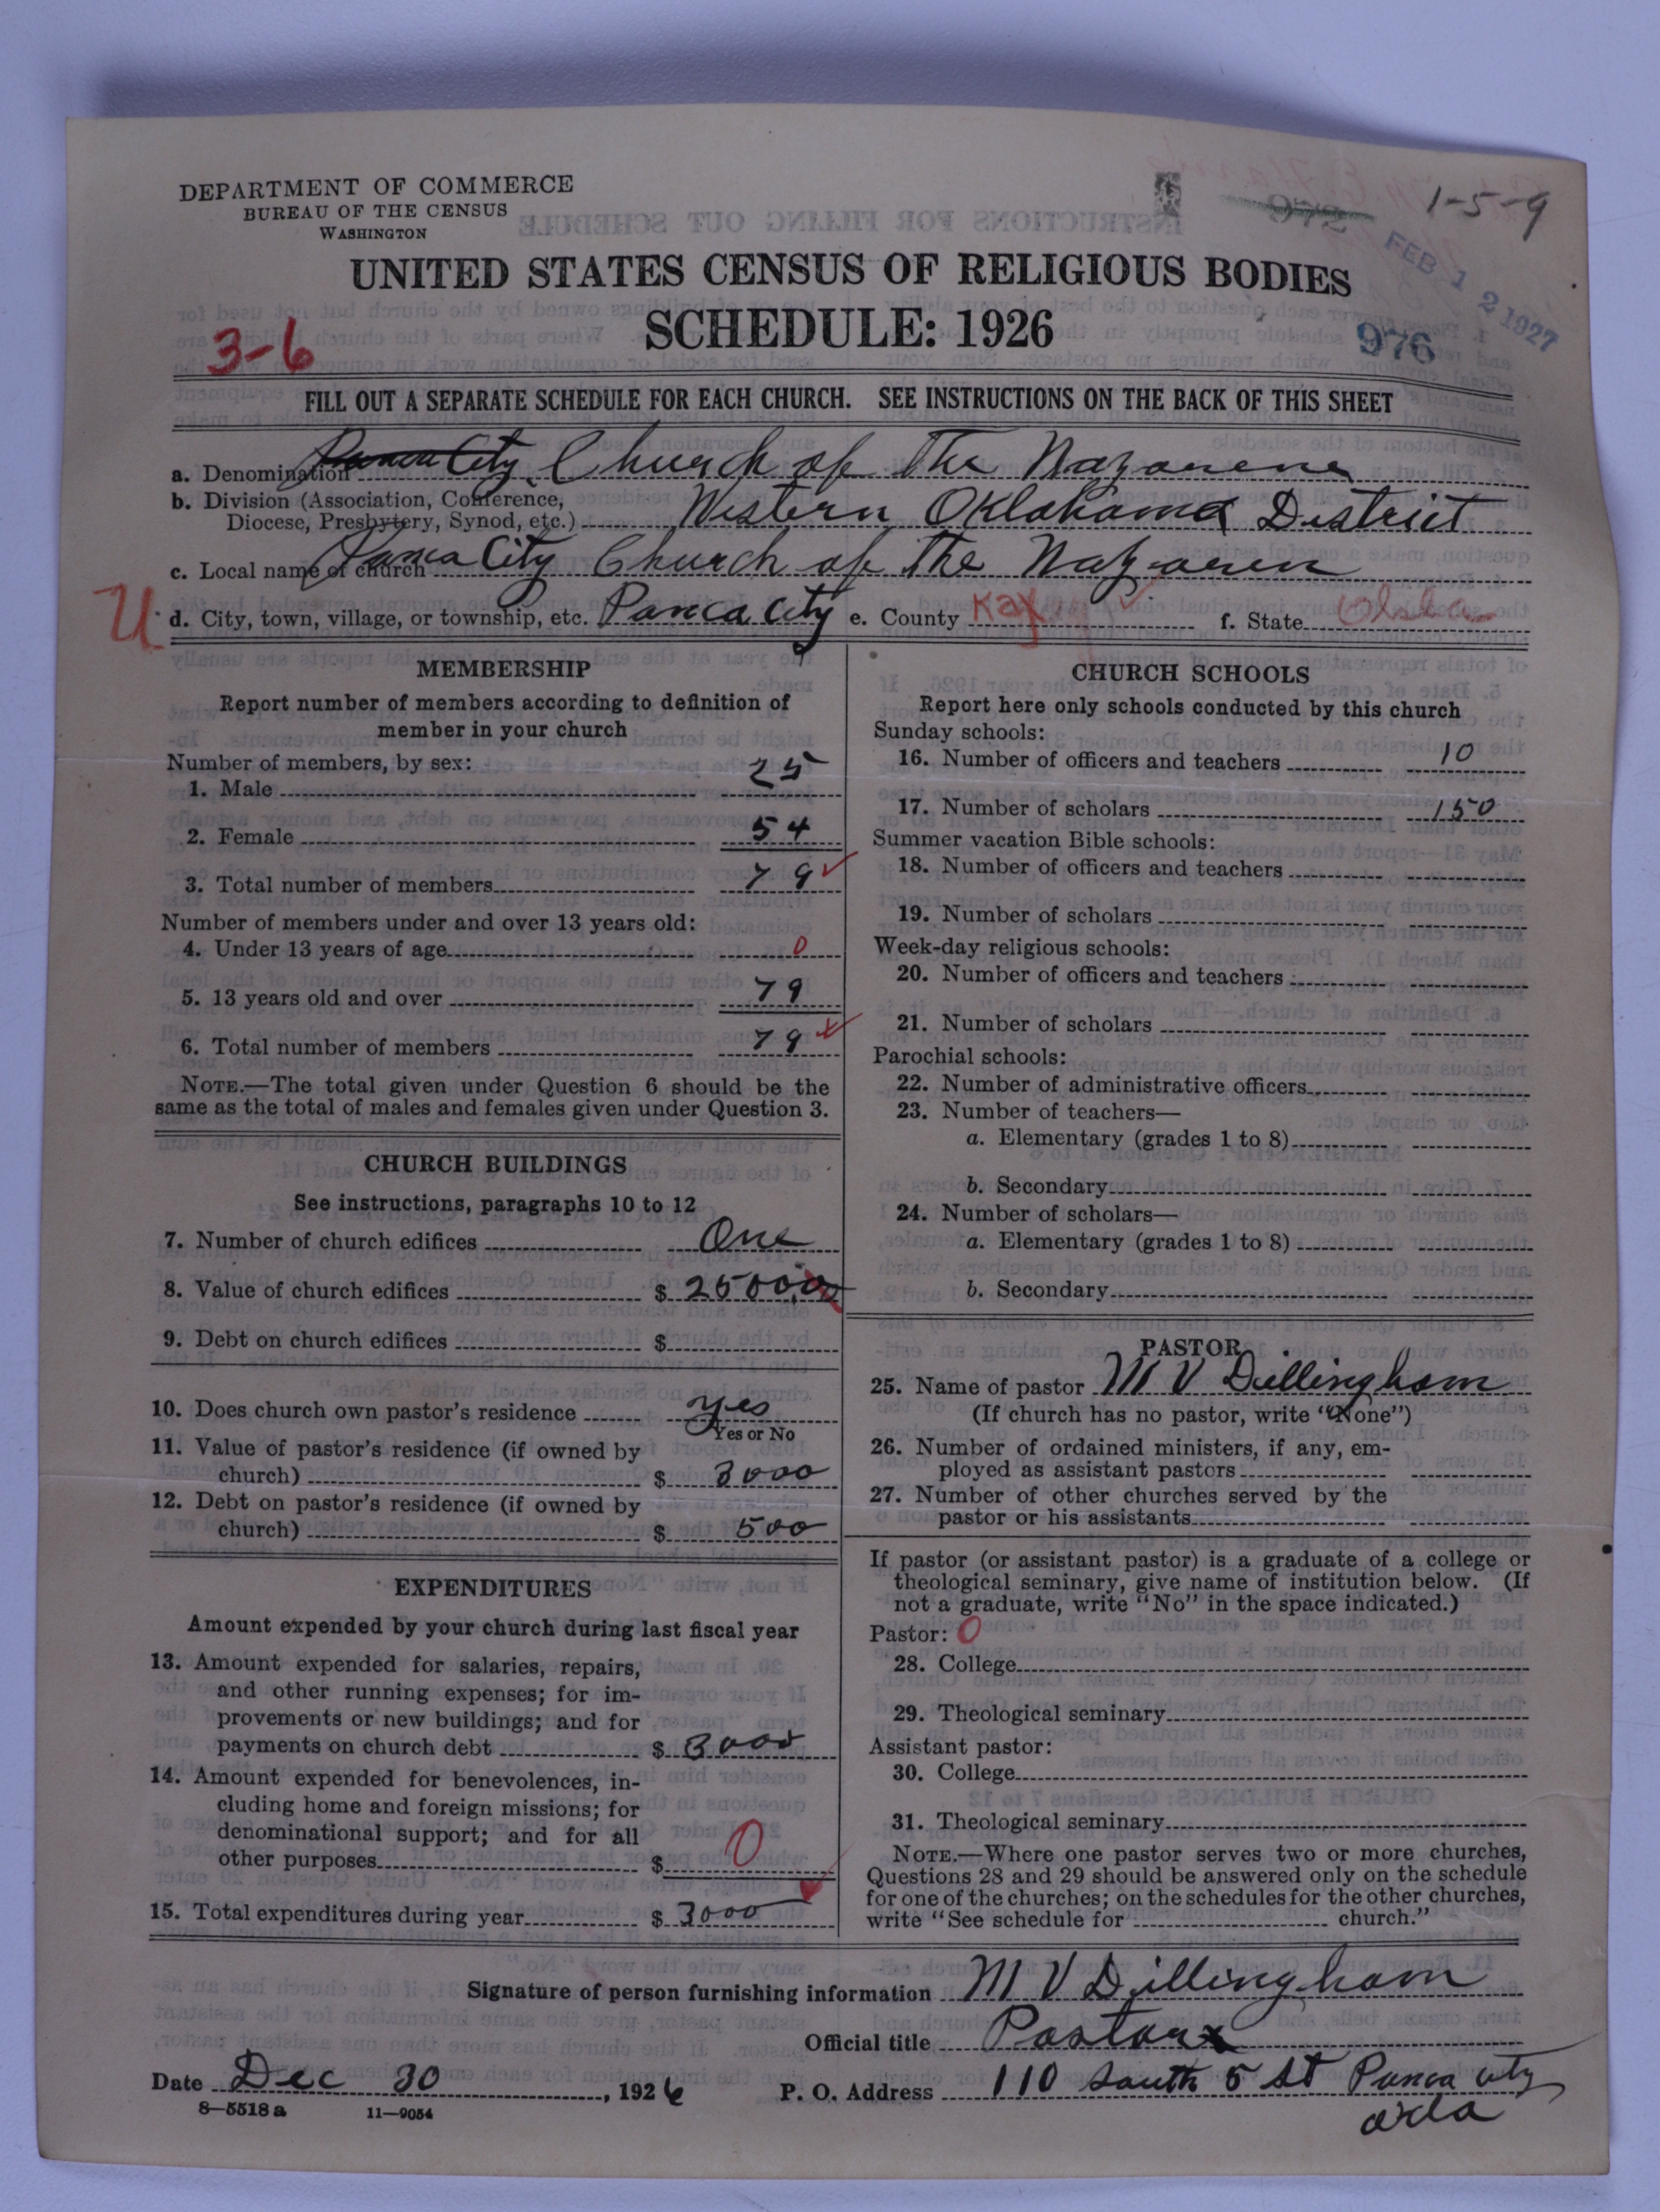 DEPARTMENT OF COMMERCE
BUREAU OF THE CENSUS
WASHINGTON
972 1-5-9
FEB 12 1927
UNITED STATES CENSUS OF RELIGIOUS BODIES
SCHEDULE: 1926
976
3-6
FILL OUT A SEPARATE SCHEDULE FOR EACH CHURCH. SEE INSTRUCTIONS ON THE BACK OF THIS SHEET
a. Denomination Ponca City Church of The Nazarene
b. Division (Association, Conference,
Diocese, Presbytery, Synod, etc.) Western Oklahoma District
c. Local name of church Ponca City Church of The Nazaren
U d. City, town, village, or township, etc. Ponca City e. County Kay f. State Okla
MEMBERSHIP
Report number of members according to definition of
member in your church
Number of members, by sex:
1. Male 25
2. Female 54
3. Total number of members 79
Number of members under and over 13 years old:
4. Under 13 years of age 0
5. 13 years old and over 79
6. Total number of members 79
NOTE.—The total given under Question 6 should be the
same as the total of males and females given under Question 3.
CHURCH BUILDINGS
See instructions, paragraphs 10 to 12
7. Number of church edifices One
8. Value of church edifices $ 25000.00
9. Debt on church edifices $
10. Does church own pastor's residence yes
Yes or No
11. Value of pastor's residence (if owned by
church) $ 3000
12. Debt on pastor's residence (if owned by
church) $ 500
EXPENDITURES
Amount expended by your church during last fiscal year
13. Amount expended for salaries, repairs,
and other running expenses; for im-
provements or new buildings; and for
payments on church debt $ 3000
14. Amount expended for benevolences, in-
cluding home and foreign missions; for
denominational support; and for all
other purposes $ 0
15. Total expenditures during year $ 3000
CHURCH SCHOOLS
Report here only schools conducted by this church
Sunday schools:
16. Number of officers and teachers 10
17. Number of scholars 150
Summer vacation Bible schools:
18. Number of officers and teachers
19. Number of scholars
Week-day religious schools:
20. Number of officers and teachers
21. Number of scholars
Parochial schools:
22. Number of administrative officers
23. Number of teachers—
a. Elementary (grades 1 to 8)
b. Secondary
24. Number of scholars—
a. Elementary (grades 1 to 8)
b. Secondary
PASTOR
25. Name of pastor M V Dillingham
(If church has no pastor, write "None")
26. Number of ordained ministers, if any, em-
ployed as assistant pastors
27. Number of other churches served by the
pastor or his assistants
If pastor (or assistant pastor) is a graduate of a college or
theological seminary, give name of institution below. (If
not a graduate, write "No" in the space indicated.)
Pastor: 0
28. College
29. Theological seminary
Assistant pastor:
30. College
31. Theological seminary
NOTE.—Where one pastor serves two or more churches,
Questions 28 and 29 should be answered only on the schedule
for one of the churches; on the schedules for the other churches,
write "See schedule for church."
Signature of person furnishing information M V Dillingham
Official title Pastor
Date Dec 30, 1926 P. O. Address 110 South 5 St Ponca City
Okla
8—5518a 11—9054